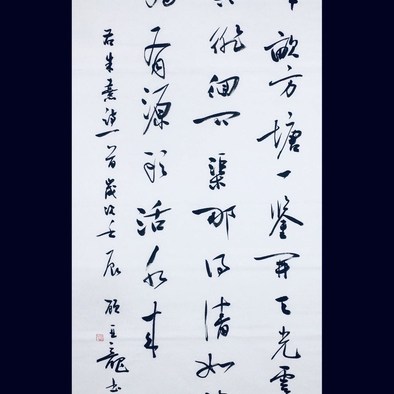 畝方塘一鑒開天光雲
徘徊問渠那得清如
有源頭活水來
朱熹詩一首歲次壬辰顧亞龍書